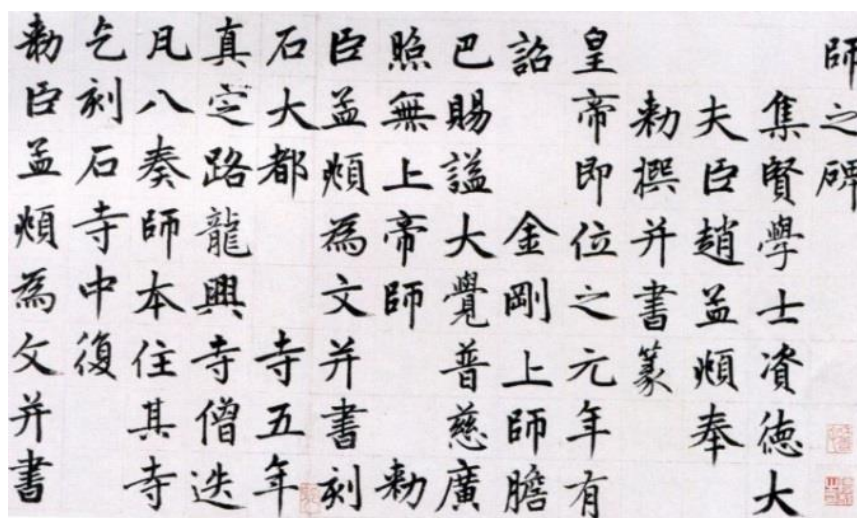 師之碑
集賢學士資德大
夫臣趙孟頫奉
勅撰并書篆
皇帝即位之元年有
詔 金剛上師膽
巴賜謚大覺普慈廣
照無上帝師 勅
臣孟頫為文并書刻
石大都 寺五年
真定路龍興寺僧迭
凡八奏師本住其寺
乞刻石寺中復
勅臣孟頫為文并書